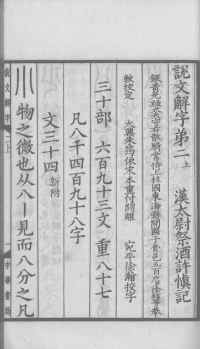 說文解字第二上　漢太尉祭酒許慎記
銀青光祿大夫守右散騎常侍上柱國東海縣開國子食邑五百戶臣徐鉉等奉
敕校定
三十部　六百九十三文　重八十七
凡八千四百九十八字
文三十四新附
川物之微也从八丨見而八分之凡
說文解字　二上
中華書局